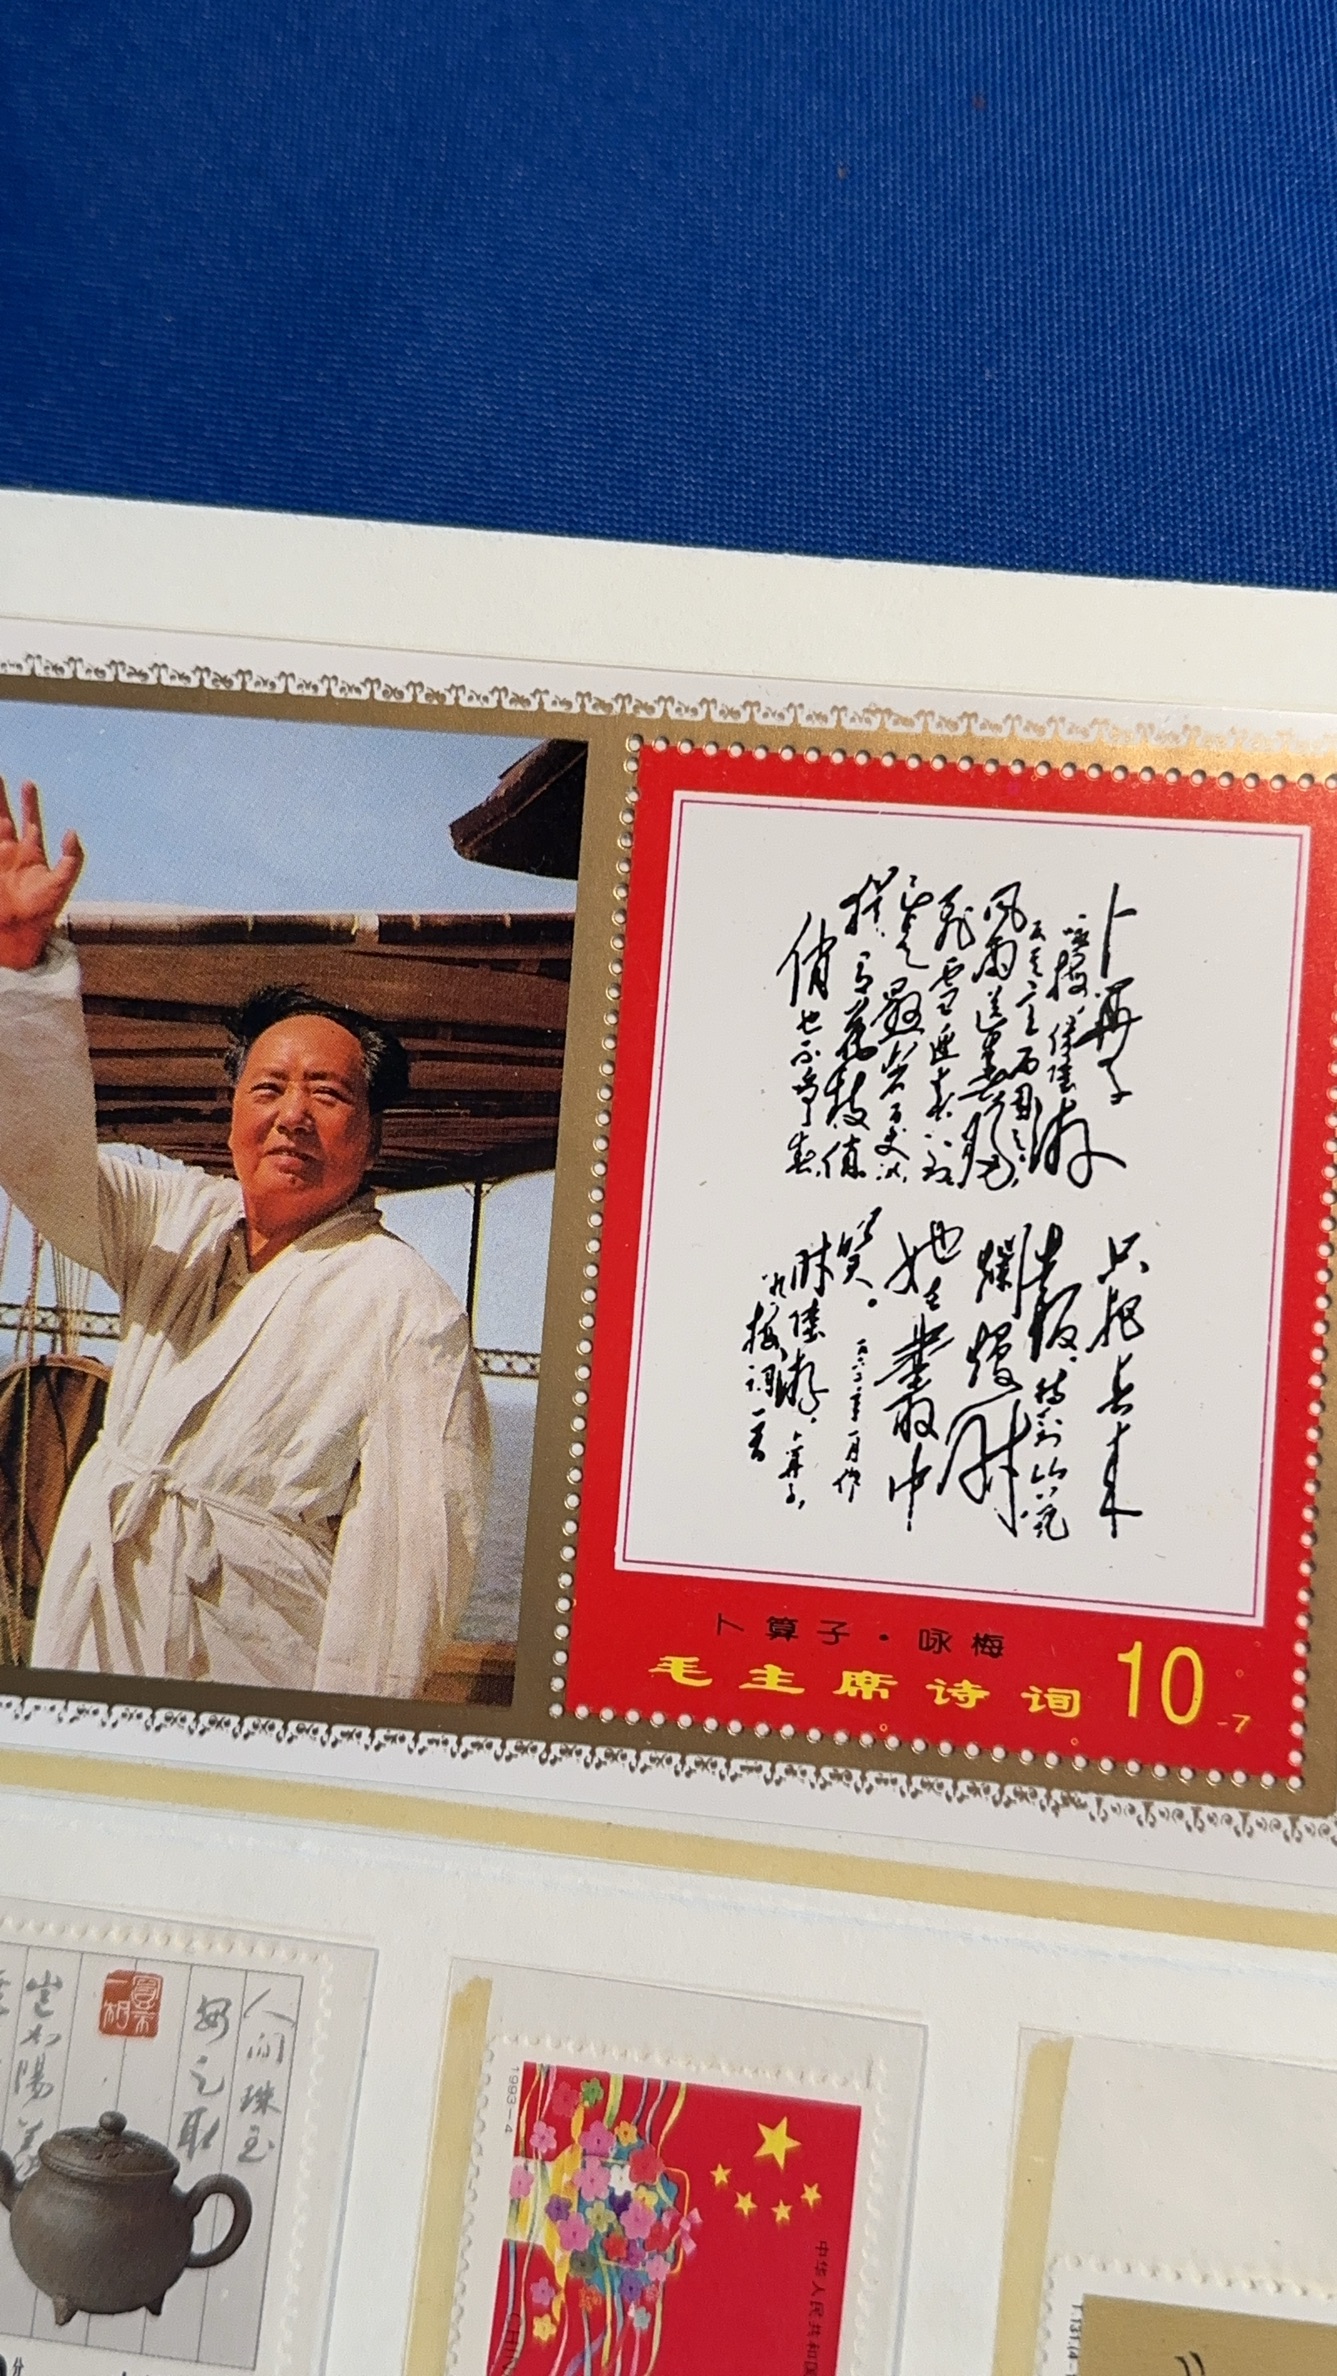 卜算子
咏梅，读陆游
反其意而用之
风雨送春归，
飞雪迎春到。
已是悬崖百丈冰，
犹有花枝俏
俏也不争春，
只把春来
报。待到山花
烂熳时
她在叢中
笑。
附陆游，卜算子，
咏梅词一首
卜算子·咏梅
毛主席诗词 10
-7
人间珠玉
安足取
豈如陽羡
分
1993-4
中华人民共和国
CHIN
T.131.(4-